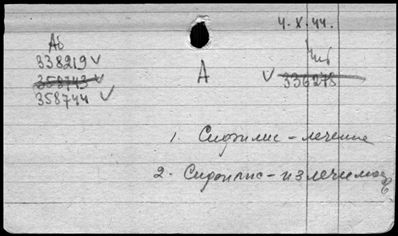 4.X.44.
Аб
338219 ✓
358743 ✓
358744 ✓
А
✓ 336278
1. Сифилис – лечение
2. Сифилис – излечимость